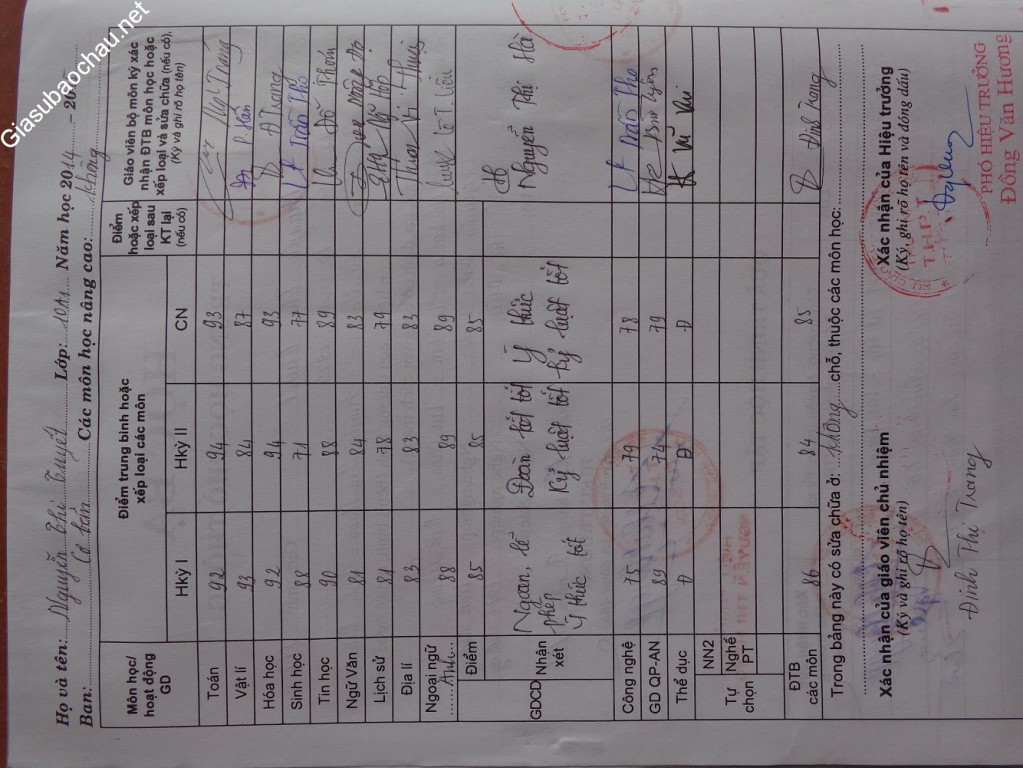 Giasubaochau.net
Họ và tên: Nguyễn Thị Tuyết Lớp: 10A1 Năm học 2014 - 2015
Ban: Cơ bản Các môn học nâng cao: Không
Môn học/ hoạt động GD
Điểm trung bình hoặc xếp loại các môn
Điểm hoặc xếp loại sau KT lại (nếu có)
Giáo viên bộ môn ký xác nhận ĐTB môn học hoặc xếp loại và sửa chữa (nếu có), (Ký và ghi rõ họ tên)
Hkỳ I Hkỳ II CN
Toán 92 94 93
Vật lí 93 84 87
Hóa học 92 94 93
Sinh học 88 71 77
Tin học 90 88 89
Ngữ Văn 81 84 83
Lịch sử 81 78 79
Địa lí 83 83 83
Ngoại ngữ Anh 88 89 89
GDCD Điểm 85 85 85
Nhận xét Ngoan, lễ phép ý thức tốt Đoàn kết tốt Kỷ luật tốt Ý thức kỷ luật tốt Nguyễn Thị Hà
Công nghệ 75 79 78
GD QP-AN 89 74 79
Thể dục Đ Đ Đ
Tự chọn NN2
Nghề PT
ĐTB các môn 86 84 85 Đinh Trang
Trong bảng này có sửa chữa ở: không chỗ, thuộc các môn học:
Xác nhận của giáo viên chủ nhiệm
(Ký và ghi rõ họ tên)
Đinh Thị Trang
Xác nhận của Hiệu trưởng
(Ký, ghi rõ họ tên và đóng dấu)
T.H.P.T
PHÓ HIỆU TRƯỞNG
Đồng Văn Hương